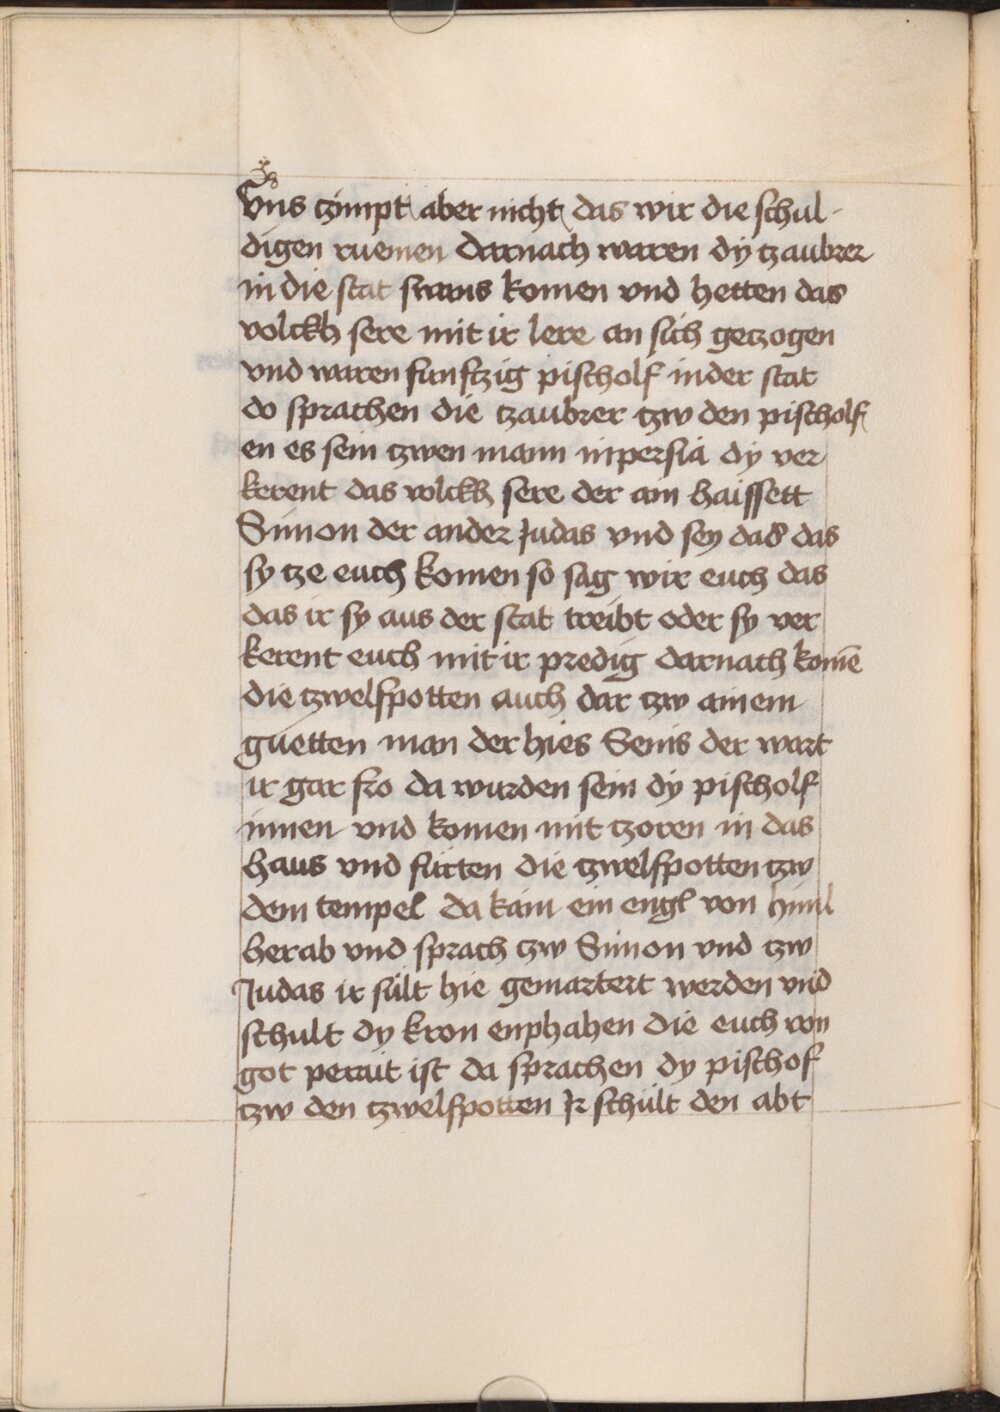 Uns tzimpt aber nicht das wir die schul-
digen ruemen darnach waren dy tzaubrer
in die stat swans komen vnd hetten das
volckh sere mit ir lere an sich getzogen
vnd waren funftzig pischolf in der stat
do sprachen die tzaubrer tzw den pischolf
en es sein tzwen mann in persia dy ver
kerent das volckh sere der ain haissett
Simon der ander Judas vnd sey das das
sy tze euch komen so sag wir euch das
das ir sy aus der stat treibt oder sy ver
kerent euch mit ir predig darnach komē
die tzwelfpotten auch dar tzw ainem
guetten man der hies Senis der wart
ir gar fro da wurden sein dy pischolf
innen vnd komen mit tzoren in das
haus vnd fürten die tzwelfpotten tzw
dem tempel da kam ein engl von himl
herab vnd sprach tzw Simon vnd tzw
Judas ir sült hie gemartert werden vnd
schult dy kron enphahen die euch von
got perait ist da sprachen dy pischof
tzw den tzwelfpotten Ir schült den abt